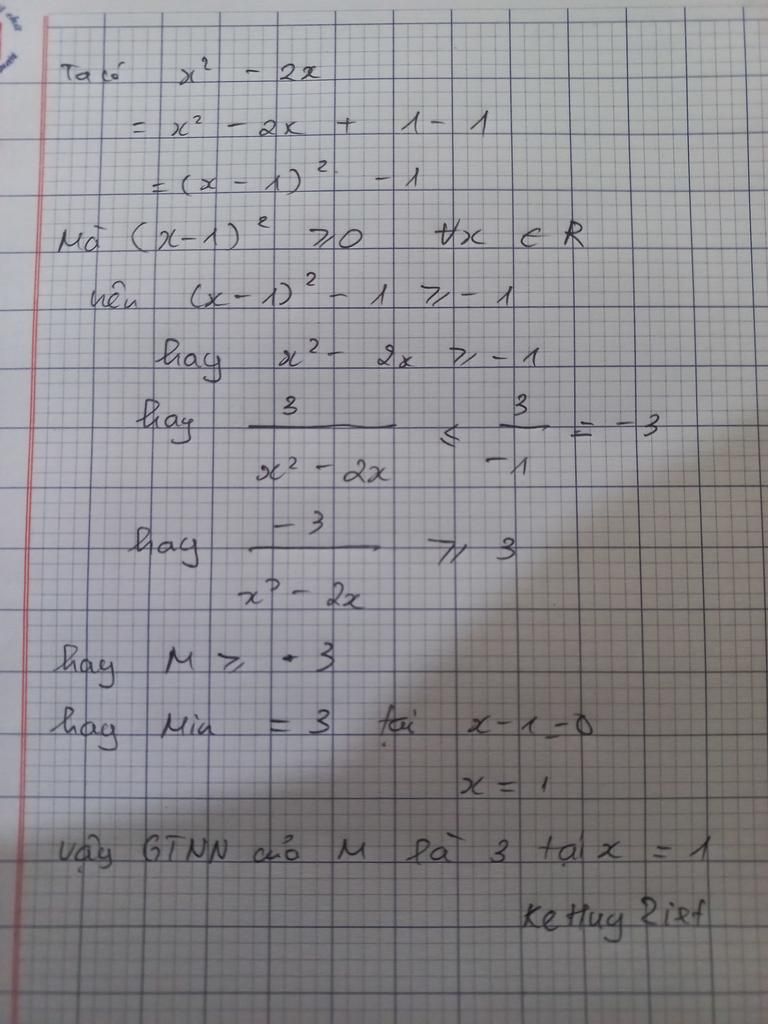 Ta có x² - 2x
= x² - 2x + 1 - 1
= (x - 1)² - 1
Mà (x-1)² ⩾0 ∀x ∈ R
nên (x - 1)² - 1 ⩾ - 1
hay x² - 2x ⩾ - 1
hay 3/(x² - 2x) ≤ 3/(-1) = - 3
hay (- 3)/(x² - 2x) ⩾ 3
hay M ⩾ 3
hay Min = 3 tại x - 1 = 0
x = 1
vậy GTNN của M là 3 tại x = 1